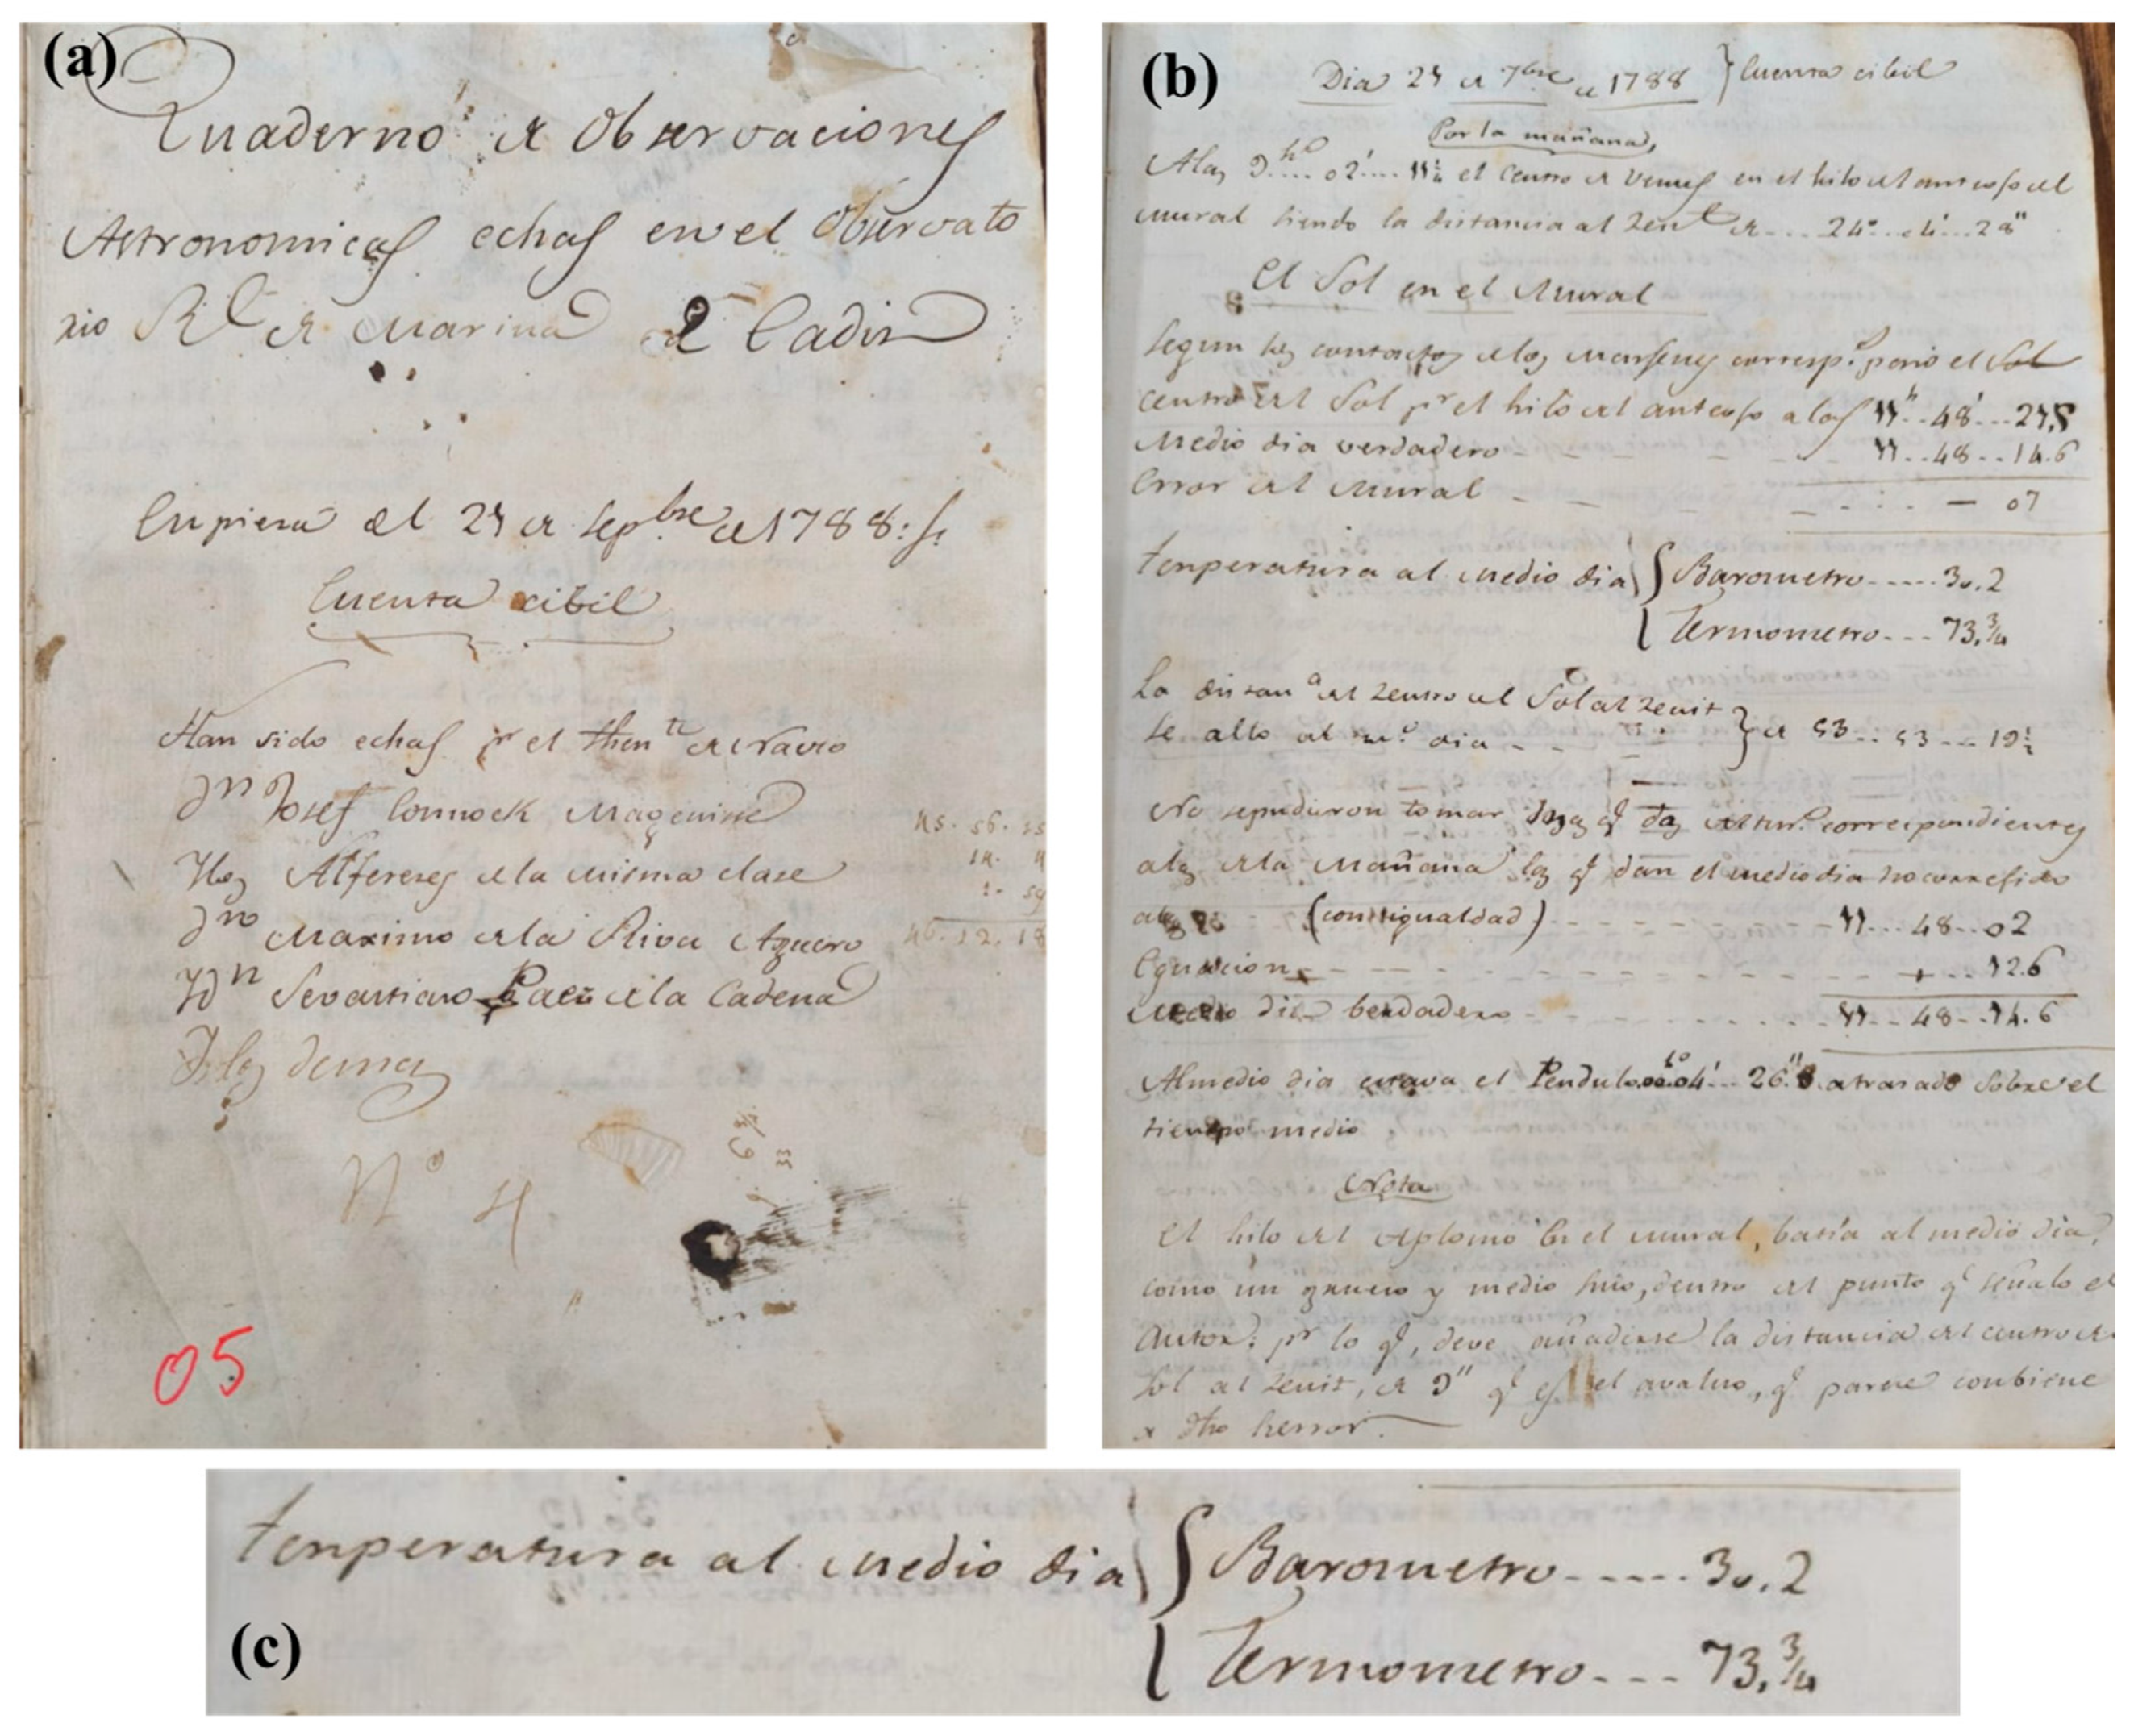 (a)
Quaderno de Observaciones
Astronomicas echas en el Observato
rio Rl de Marina de Cadiz
Enpieza el 24 de Sepbre de 1788:
Cuenta cibil
Han sido echas pr el thente de Navio
Dn Josef Connock Magenise
Alferezes de la misma clase
Dn Maximo de la Riva Aguero
Dn Sevastiano Paez de la Cadena
demas
No 4
05
(b)
Dia 24 de 7bre de 1788 } Cuenta cibil
Por la mañana,
Alas 9.... 02'.... el Centro de Venus en el hilo del anteojo del
mural siendo la distancia al Zent de.... 24°
El Sol en el Mural
Segun los contactos de los Marjenes corresp. paso el Sol
centro del Sol pr el hilo del anteojo a las 11h..48'...21,5
Medio dia verdadero 11..48..14.6
Error del Mural - 07
tenperatura al medio dia { Barometro.....30.2
{ Termometro... 73.3/4
La distana del Zentro del Sol al Zenit
se alto al mo dia } de 53..53...19½
No sepudieron tomar Altur. correspondientes
alas dela Mañana las q dan el mediodia no correjido
(con igualdad) 11...48..02
Equacion + ...12.6
Medio dia berdadero 11...48..14.6
Almedio dia estava el Pendulo 00.04'...26" atrasado sobre el
tienpo medio
Nota
El hilo del Aplomo en el mural, batia al medio dia,
como un grueso y medio suio, dentro del punto q señalo el
Autor; pr lo q, deve añadirse la distancia del centro del
Sol al Zenit, de 9" q es el avaluo, q parece conbiene
a dho herror.
(c)
tenperatura al medio dia { Barometro.....30.2
{ Termometro... 73.3/4